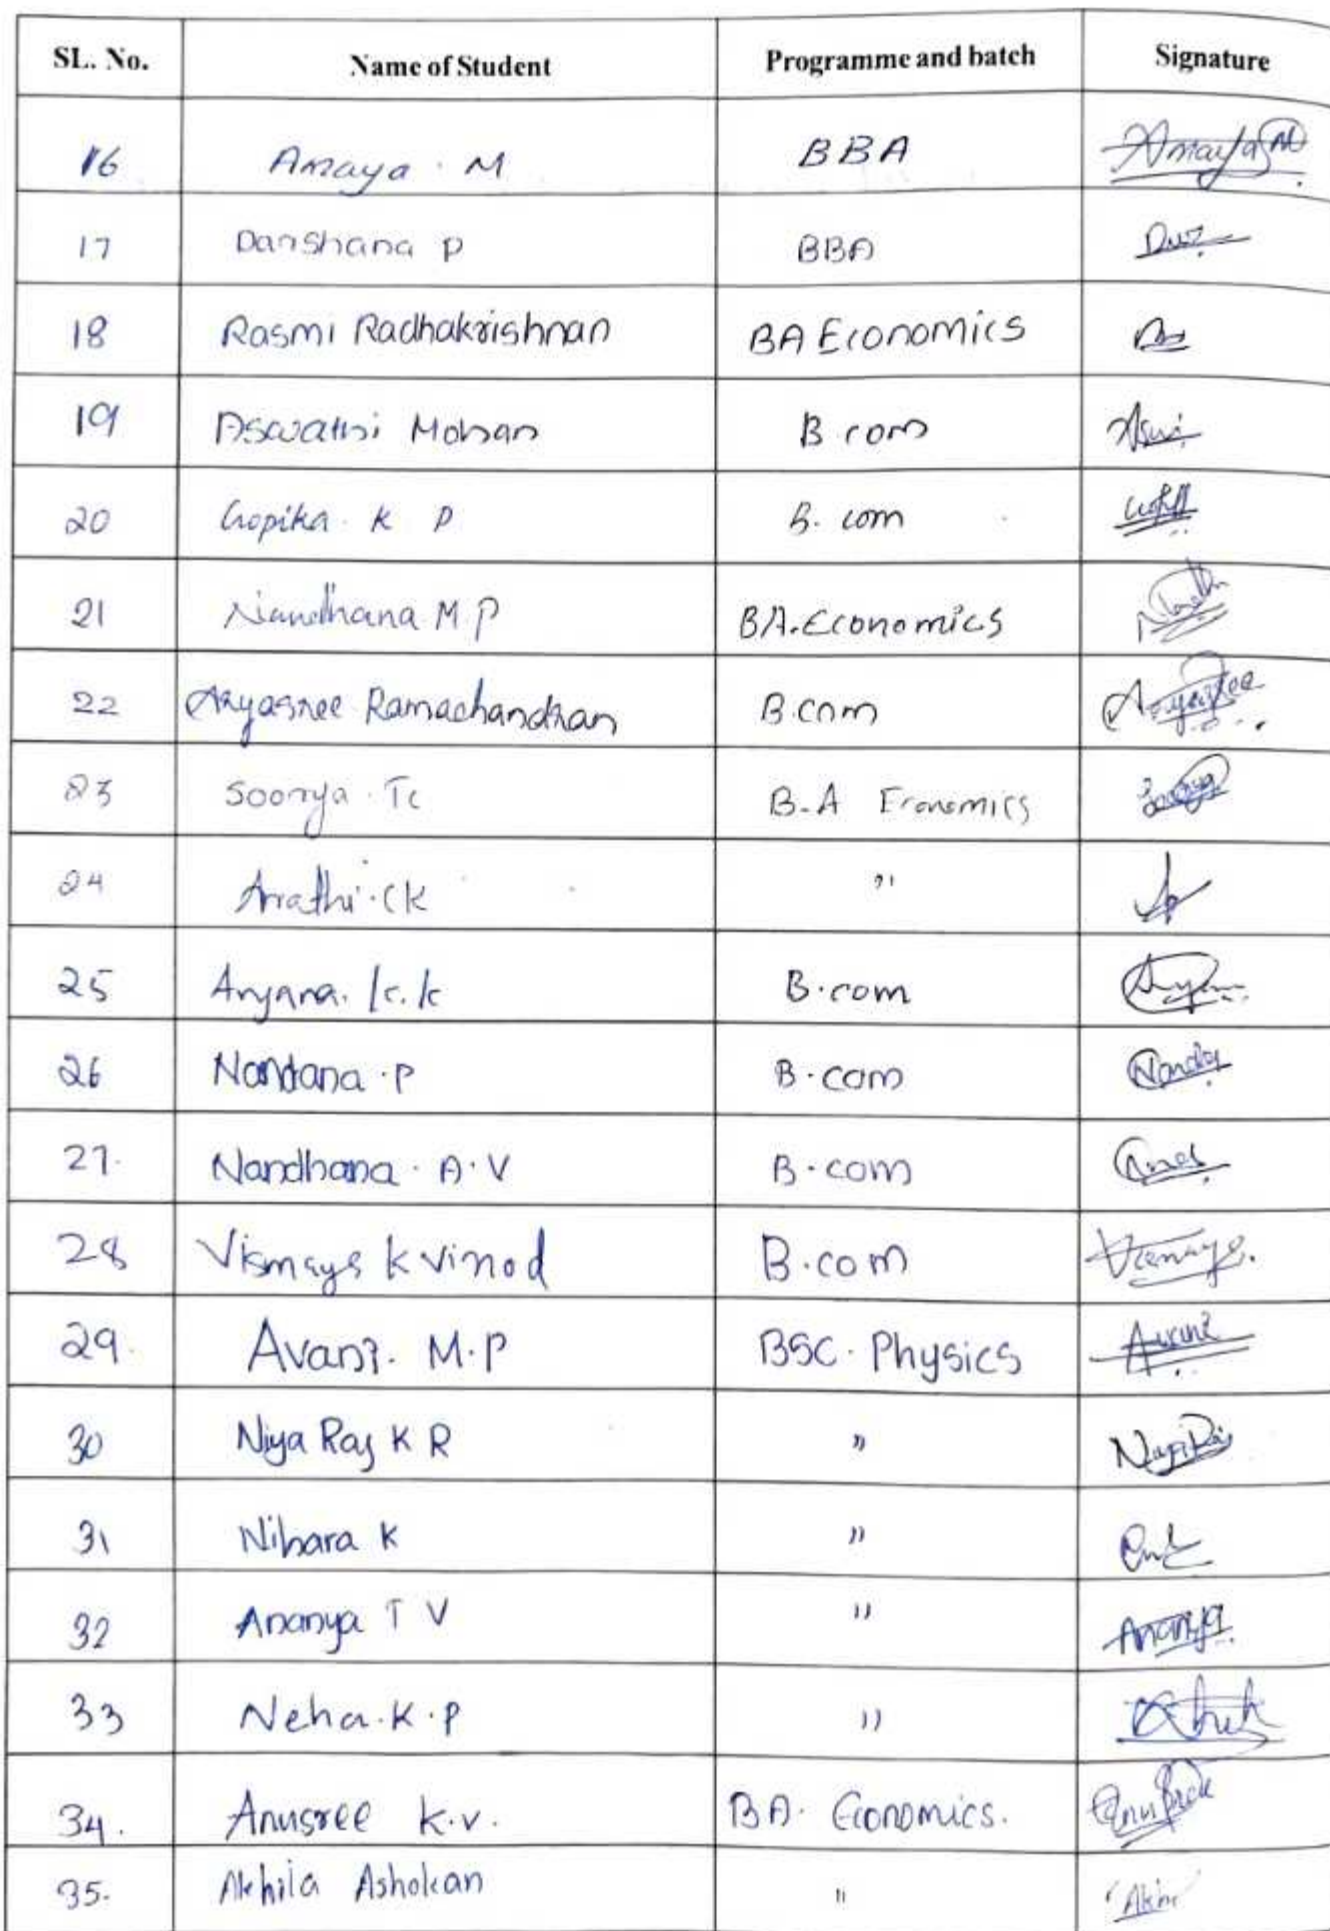 SL. No. Name of Student Programme and batch Signature
16 Amaya . M BBA Amaya M
17 Darshana P BBA
18 Rasmi Radhakrishnan BA Economics
19 Aswathi Mohan B.com
20 Gopika . K P B. com
21 Nandhana M P BA.Economics
22 Aryasree Ramachandran B.com Aryasree
23 Soorya . Tc B.A Economics Soorya
24 Arrathi . Ck "
25 Anjana. k.k B.com
26 Nandana . P B.com
27. Nandhana . A.V B.com
28 Vismaya k vinod B.com Vismaya.
29. Avani. M.P BSC. Physics Avani
30 Niya Raj K R "
31 Nihara K "
32 Ananya T V " Ananya
33 Neha.K.P "
34. Anusree K.v. BA. Economics. Anusree
35. Akhila Ashokan "